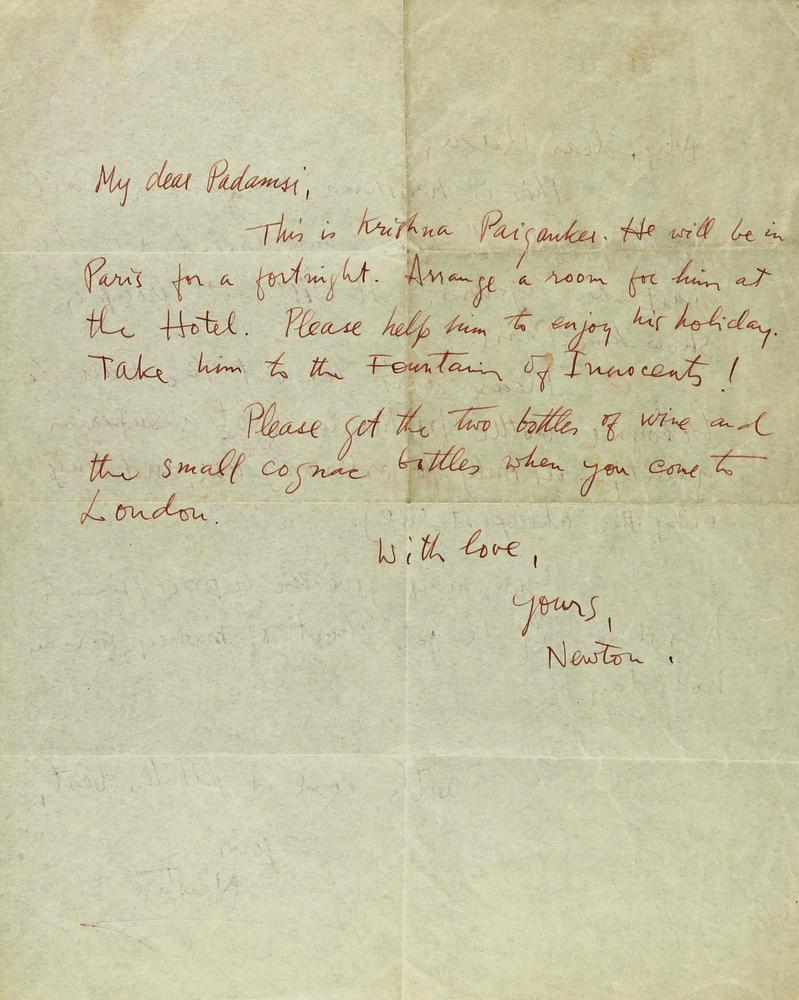 My dear Padamsi,
This is Krishna Paigankar. He will be in
Paris for a fortnight. Arrange a room for him at
the Hotel. Please help him to enjoy his holiday.
Take him to the Fountain of Innocents!
Please get the two bottles of wine and
the small cognac bottles when you come to
London.
With love,
Yours,
Newton.